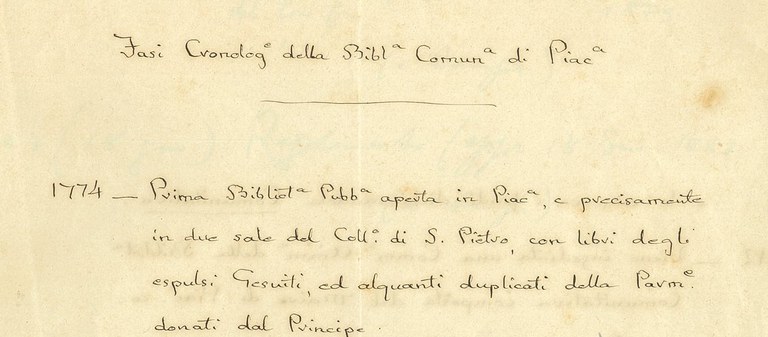 Fasi Cronologe della Bibla Comuna di Piaca
1774 — Prima Bibliota Pubba aperta in Piaca, e precisamente
in due sale del Coll°. di S. Pietro, con libri degli
espulsi Gesuiti, ed alquanti duplicati della Parme.
donati dal Principe.